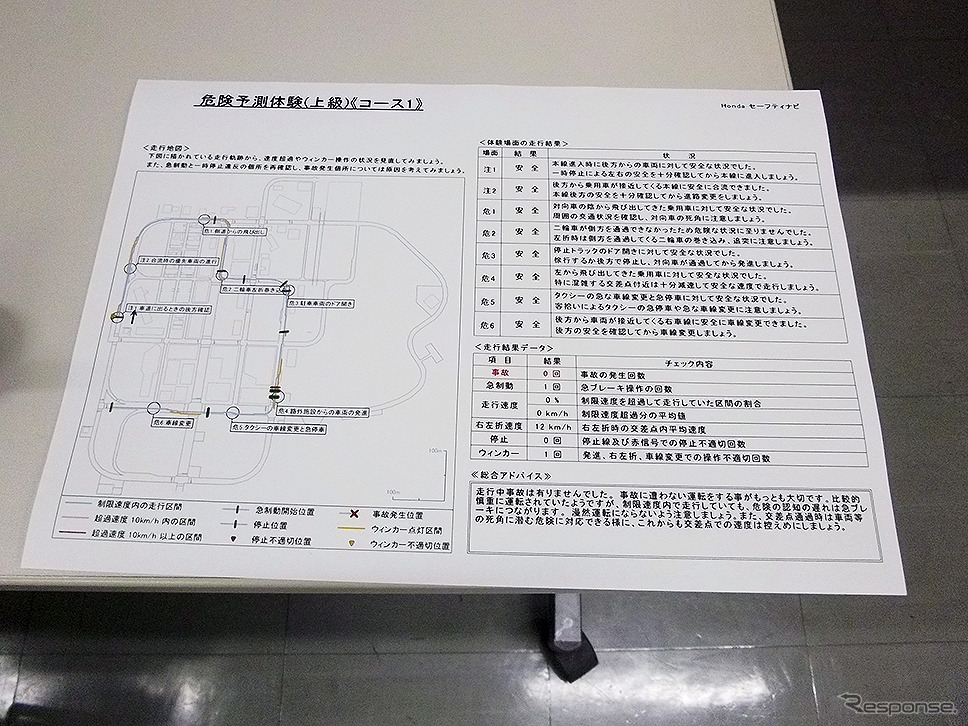 危険予測体験(上級)《コース1》
Honda セーフティナビ
<走行地図>
下図に描かれている走行軌跡から、速度超過やウィンカー操作の状況を見直してみましょう。
また、急制動と一時停止違反の個所を再確認し、事故発生個所については原因を考えてみましょう。
危1 側道からの飛び出し
注2 合流時の優先車両の進行
危2 二輪車左折巻き込み
危3 駐車車両のドア開き
注1 車道に出るときの後方確認
危4 路外施設からの車両の発進
危6 車線変更
危5 タクシーの車線変更と急停車
100m
100m
制限速度内の走行区間
超過速度 10km/h 内の区間
超過速度 10km/h 以上の区間
急制動開始位置
停止位置
停止不適切位置
事故発生位置
ウィンカー点灯区間
ウィンカー不適切位置
<体験場面の走行結果>
場面 結果 状況
注1 安全 本線進入時に後方からの車両に対して安全な状況でした。
一時停止による左右の安全を十分確認してから本線に進入しましょう。
注2 安全 後方から乗用車が接近してくる本線に安全に合流できました。
本線後方の安全を十分確認してから進路変更をしましょう。
危1 安全 対向車の陰から飛び出してきた乗用車に対して安全な状況でした。
周囲の交通状況を確認し、対向車の死角に注意しましょう。
危2 安全 二輪車が側方を通過できなかったため危険な状況に至りませんでした。
左折時は側方を通過してくる二輪車の巻き込み、追突に注意しましょう。
危3 安全 停止トラックのドア開きに対して安全な状況でした。
徐行するか後方で停止し、対向車が通過してから発進しましょう。
危4 安全 左から飛び出してきた乗用車に対して安全な状況でした。
特に混雑する交差点付近は十分減速して安全な速度で走行しましょう。
危5 安全 タクシーの急な車線変更と急停車に対して安全な状況でした。
客拾いによるタクシーの急停車や急な車線変更に注意しましょう。
危6 安全 後方から車両が接近してくる右車線に安全に車線変更できました。
後方の安全を確認してから車線変更しましょう。
<走行結果データ>
項目 結果 チェック内容
事故 0 回 事故の発生回数
急制動 1 回 急ブレーキ操作の回数
走行速度 0 % 制限速度を超過して走行していた区間の割合
0 km/h 制限速度超過分の平均値
右左折速度 12 km/h 右左折時の交差点内平均速度
停止 0 回 停止線及び赤信号での停止不適切回数
ウィンカー 1 回 発進、右左折、車線変更での操作不適切回数
≪総合アドバイス≫
走行中事故は有りませんでした。事故に遭わない運転をする事がもっとも大切です。比較的
慎重に運転されていたようですが、制限速度内で走行していても、危険の認知の遅れは急ブレ
ーキにつながります。漫然運転にならないよう注意しましょう。また、交差点通過時は車両等
の死角に潜む危険に対応できる様に、これからも交差点での速度は控えめにしましょう。
Response.